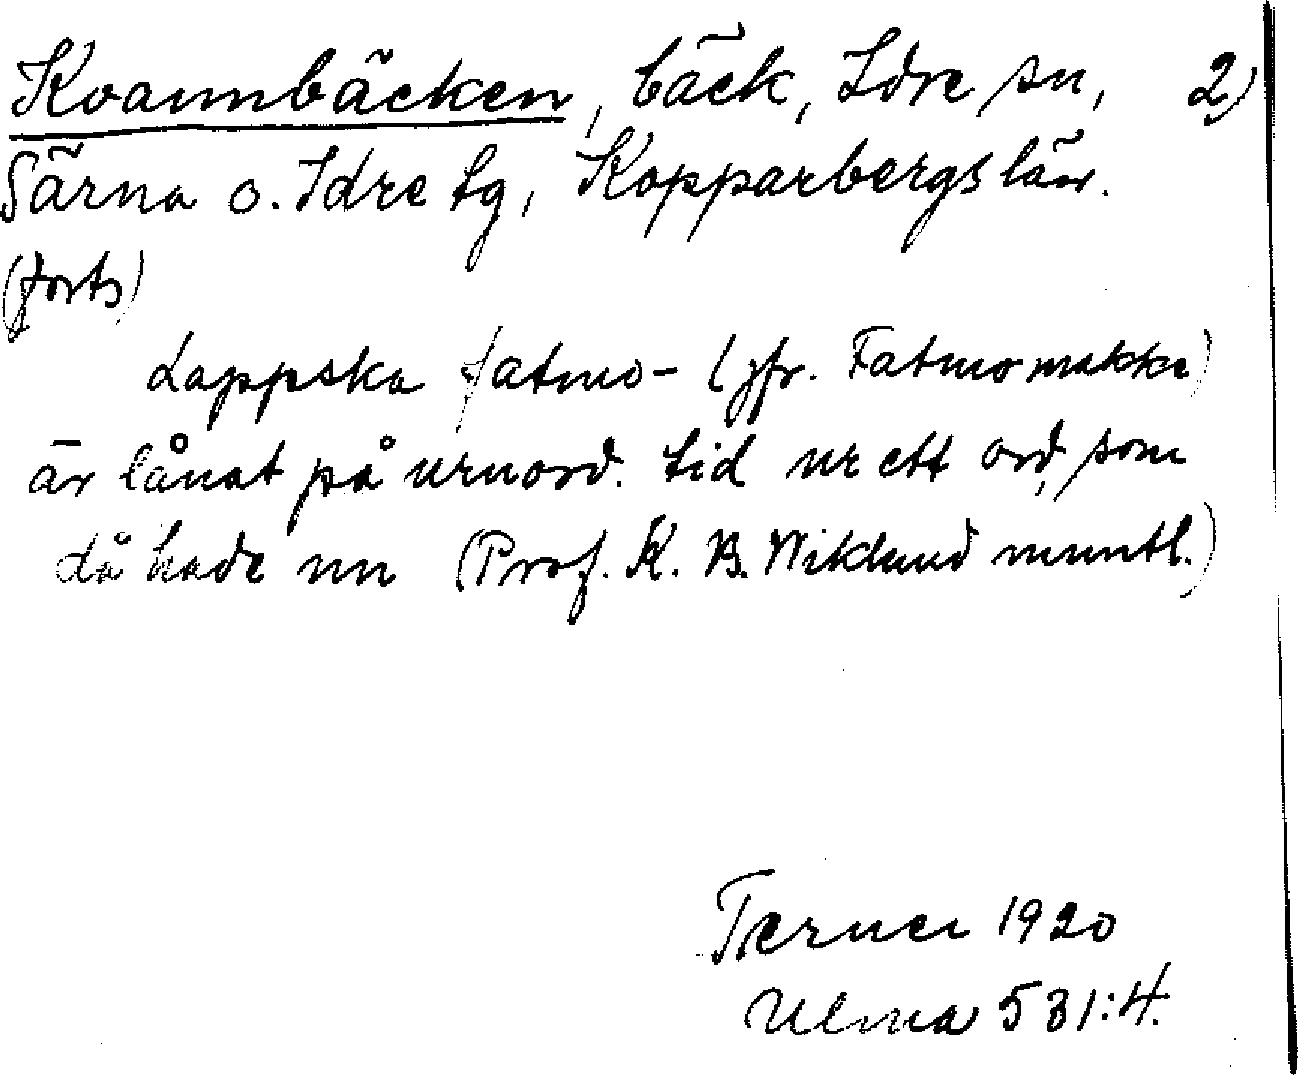 Kvannbäcken, bäck, Idre sn, 2)
Särna o. Idre tg, Kopparbergs län.
(forts)
Lappska fatmo- (jfr. Fatmomakke)
är lånat på urnord. tid ur ett ord, som
då hade nn (Prof. K. B. Wiklund muntl.)
Terner 1920
Ulma 531:4.